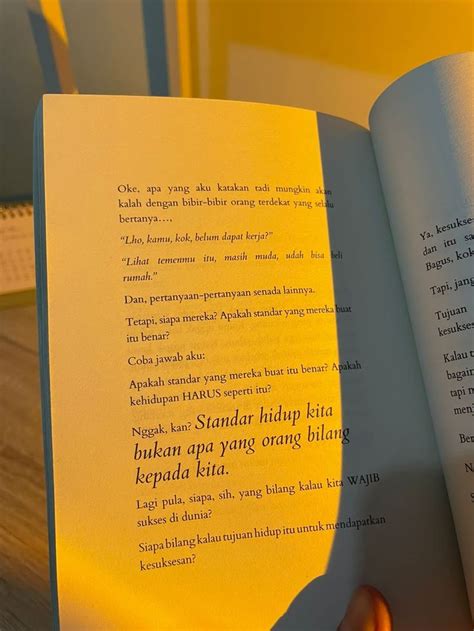 Oke, apa yang aku katakan tadi mungkin akan
kalah dengan bibir-bibir orang terdekat yang selalu
bertanya…,
“Lho, kamu, kok, belum dapat kerja?”
“Lihat temenmu itu, masih muda, udah bisa beli
rumah.”
Dan, pertanyaan-pertanyaan senada lainnya.
Tetapi, siapa mereka? Apakah standar yang mereka buat
itu benar?
Coba jawab aku:
Apakah standar yang mereka buat itu benar? Apakah
kehidupan HARUS seperti itu?
Nggak, kan? Standar hidup kita
bukan apa yang orang bilang
kepada kita.
Lagi pula, siapa, sih, yang bilang kalau kita WAJIB
sukses di dunia?
Siapa bilang kalau tujuan hidup itu untuk mendapatkan
kesuksesan?
Ya, kesukse-
dan itu
Bagus, kok
Tapi,
Tujuan
kesukse
Kalau